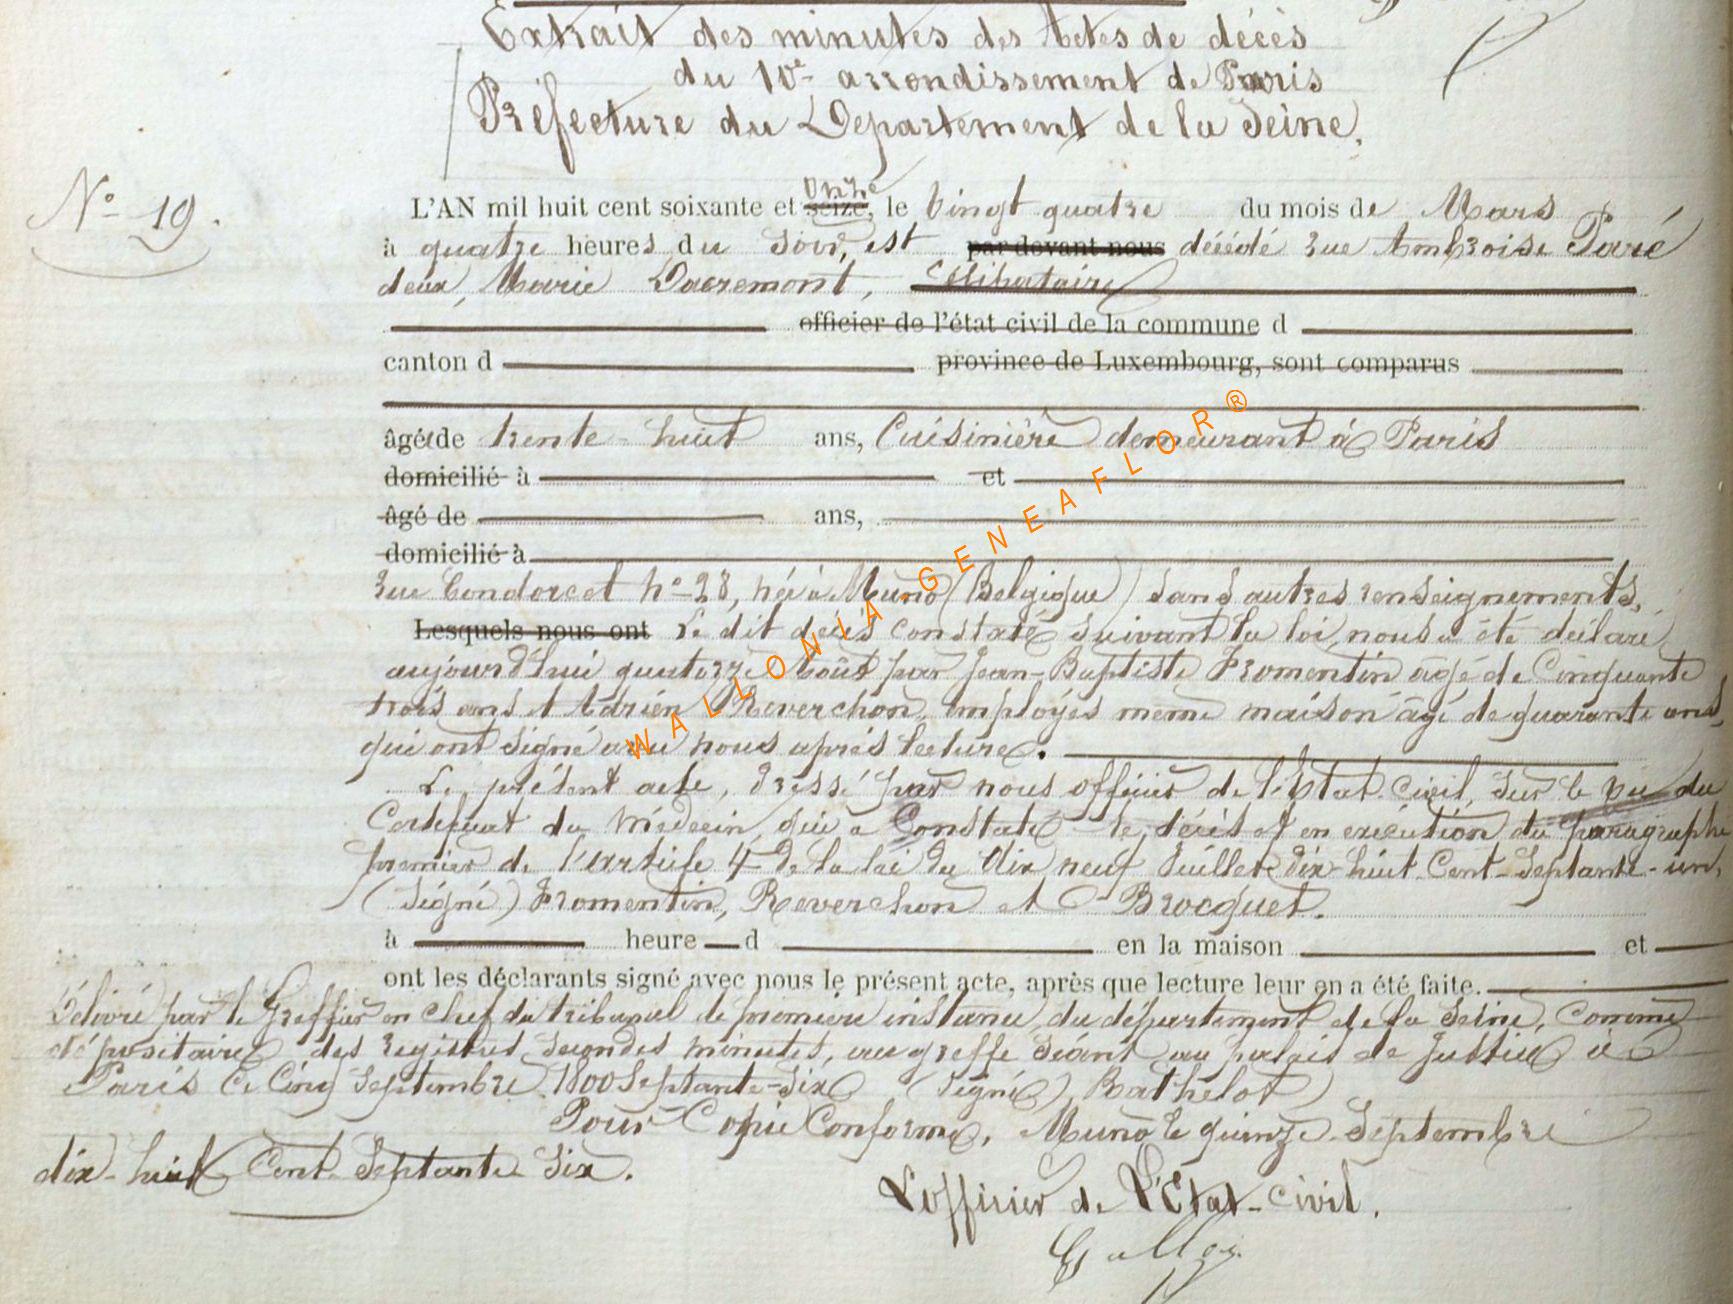 Extrait des minutes des Actes de décès
du 10e arrondissement de Paris
Préfecture du Département de la Seine,
N° 19.
onze
L'AN mil huit cent soixante et seize, le Vingt quatre du mois de Mars
à quatre heures du soir, est par devant nous décédé rue Ambroise Paré
deux, Marie Dacremont, Célibataire
officier de l'état civil de la commune d
canton d province de Luxembourg, sont comparus
âgée de trente-huit ans, Cuisinière demeurant à Paris
domicilié à et
âgé de ans,
domicilié à
rue Condorcet n° 28, née à Muno (Belgique) sans autres renseignements,
Lesquels nous ont Le dit décès constaté suivant la loi, nous a été déclaré
aujourd'hui quatorze Août par Jean-Baptiste Fromentin âgé de Cinquante
trois ans et Adrien Reverchon, employés même maison âgé de quarante ans,
qui ont signé avec nous après lecture.
Le présent acte, dressé par nous officier de l'Etat-civil, sur le vu du
Certificat du Médecin, qui a Constaté le décès et en exécution du paragraphe
premier de l'article 4 de la loi du dix neuf Juillet dix-huit-Cent-Septante-un,
(signé) Fromentin, Reverchon et Brocquet.
à heure d en la maison et
ont les déclarants signé avec nous le présent acte, après que lecture leur en a été faite.
Délivré par le Greffier en chef du tribunal de première instance du département de la Seine, comme
dépositaire des registres secondes minutes, au greffe séant au palais de Justice à
Paris Ce Cinq Septembre 1800 Septante-Six (signé) Bathelot
Pour Copie Conforme, Muno le quinze Septembre
dix-huit Cent Septante Six.
L'officier de l'Etat-civil.
WALLONIA GENEAFLOR®